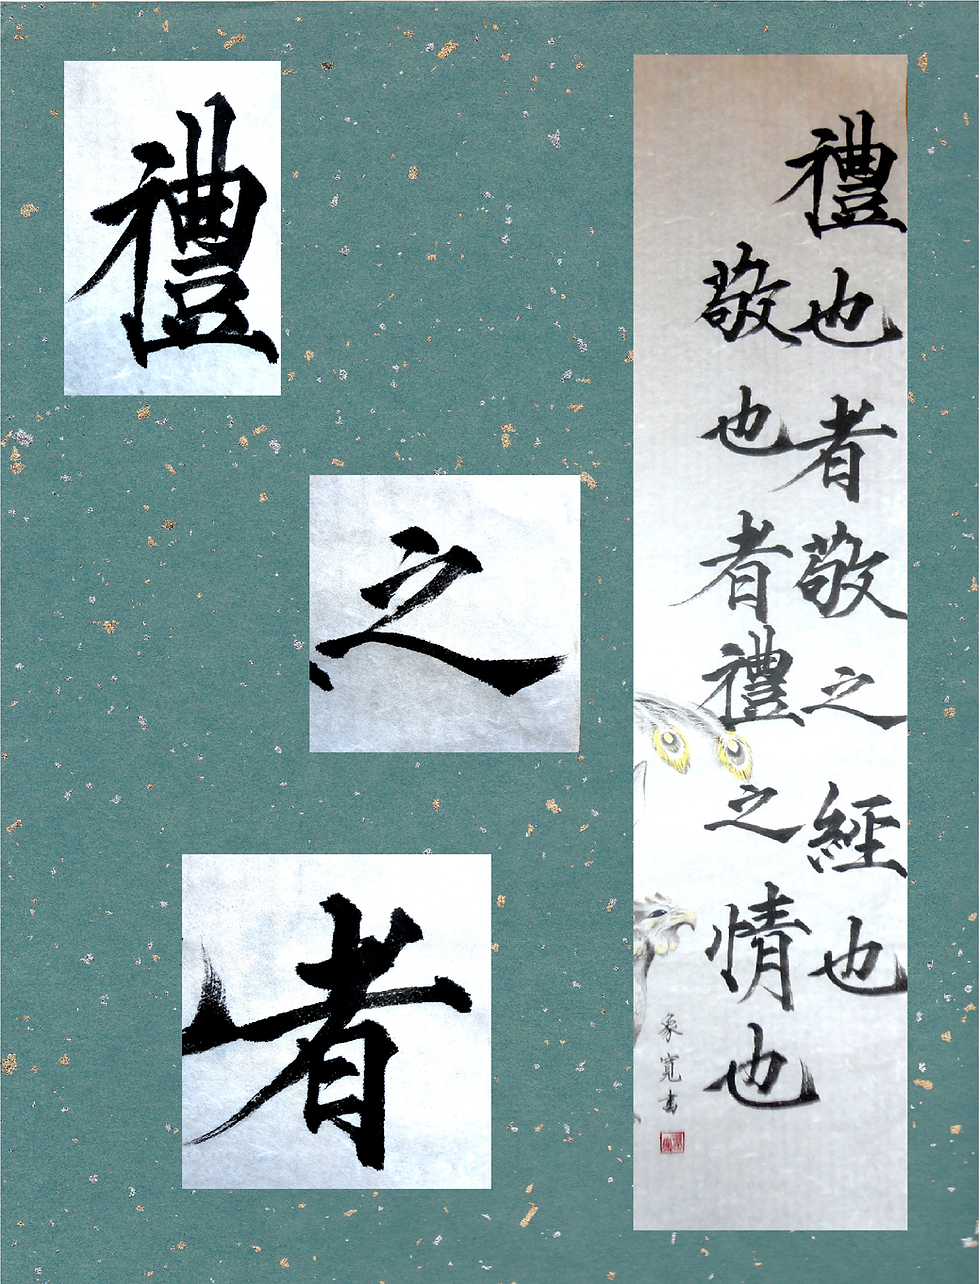 禮也者敬之經也
敬也者禮之情也
象寬書
禮
之
者